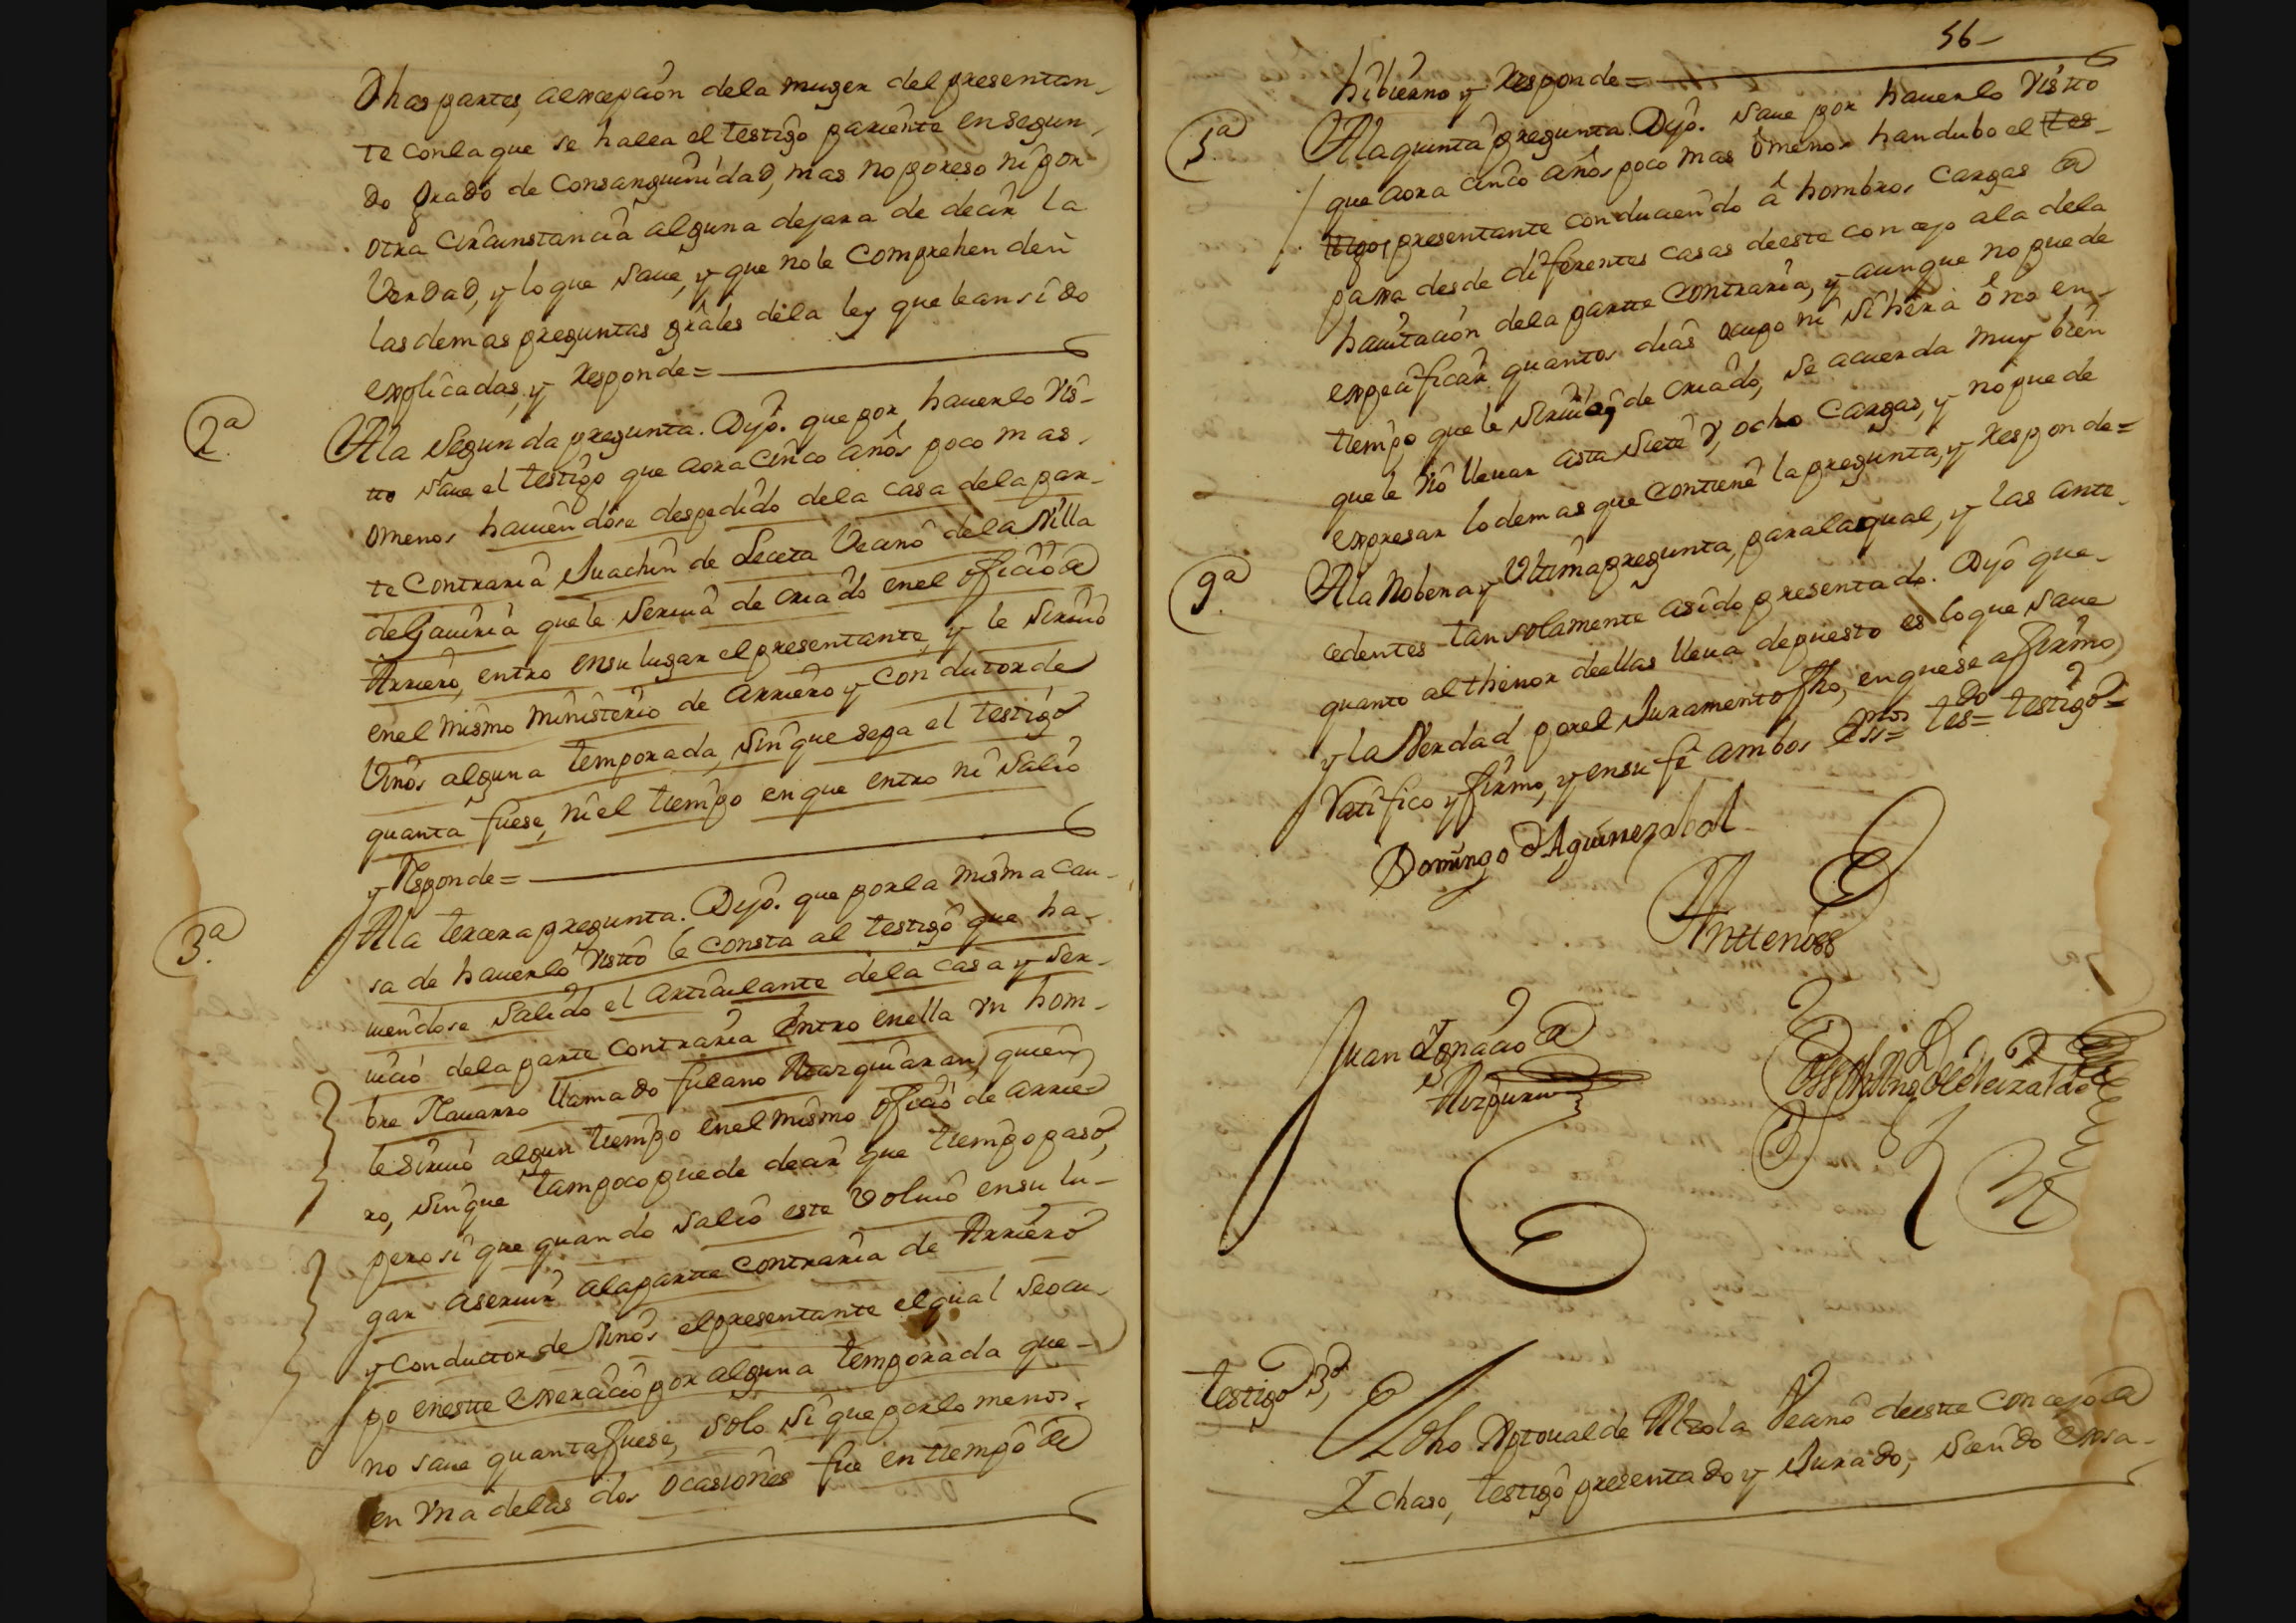 Dhas partes, alexcepcion dela muger del presentan-
te conla que se halla el testigo pariente ensegun-
do grado de Consanguinidad, mas no poreso ni por
otra Circunstancia alguna dejara de decir la
Verdad, y lo que save, y que nole Comprehenden
las demas preguntas grãles dela ley que lean sido
explicadas, y Responde=
2ª. Ala Segunda pregunta. Dijo. que por haverlo Vis-
tto save el testigo que aora Cinco años poco mas
omenos haviendose despedido dela casa dela par-
te Contraria Juachin de Leceta Vecino dela Villa
de Gaviria quele Servia de criado enel oficio de
Arriero, entro ensu lugar el presentante, y le Sirvio
enel mismo ministerio de arriero y Condutor de
Vinos alguna temporada, sin que sepa el testigo
quanta fuese, niel tiempo enque entro ni Salio
y Responde=
3ª. Ala tercera pregunta. Dijo. que porla misma Cau-
sa de haverlo Vistto le consta al testigo que ha-
viendose Salido el articulante dela casa y ser-
vicio dela parte Contraria Entro enella vn hom-
bre Navarro llamado fulano Azarquiaran, quien
le Sirvio algun tiempo enel mismo oficio de arrie-
ro, sinque tampoco puede decir que tiempo paso,
pero si que quando Salio este Volvio ensu lu-
gar aservir alapartte Contraria de Arriero
y Conductor de Vinos el presentante elqual seocu-
po enestte Exercicio por alguna temporada que-
no save quanta fuese, solo si que porlo menos
en vna delas dos ocasiones fue en tiempo de
56-
hibierno y Responde=
5ª. Ala quinta pregunta. Dijo. save por haverlo Vistto
que aora cinco años poco mas omenos handubo el tes-
tigo, presentante conduciendo â hombros cargas de
parra desde diferentes casas deeste concejo ala dela
havitacion dela partte contraria, y aunque no puede
expecificar quantos dias ocupo ni si hera ô no en-
tiempo que le Servia de criado, se acuerda muy bien
quele vio llevar asta siete v, ocho cargas, y nopuede
expresar lodemas que contiene la pregunta, y Responde=
9ª. Ala Nobena y Vltima pregunta, paralaqual, y las ante-
cedentes tan solamente asido presentado. Dijo que-
quanto althenor deellas lleva depuesto es loque save
y la Verdad porel Juramento fho, enquese affirmo
Ratifico y firmo, y ensu fe ambos
Domingo D Aguirrezabal
Anttenoss
Juan Ygnacio de
Testigo 3º,
Dho Xptoual de Alzola Vecino deestte concejo de
Ichaso, testigo presentado y Jurado, siendo Exsa-